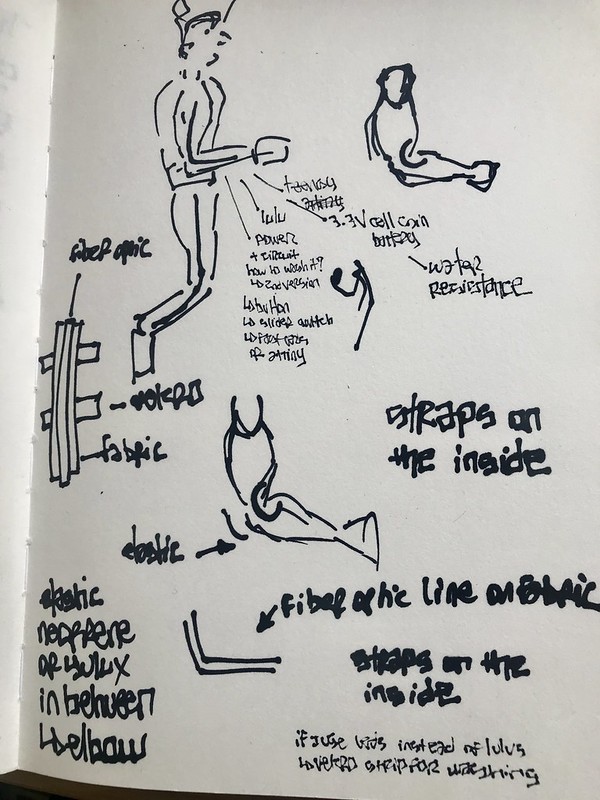 lulu
3.3V cell coin
battery
power
+ circuit
how to wash it?
↳ 2nd version
water
resistance
fiber optic
↳ button
↳ slider switch
velcro
fabric
straps on
the inside
elastic
fiber optic line on fabric
elastic
neoprene
or
in between
↳ elbow
straps on the
inside
if I use instead of lulus
↳ velcro strip for washing